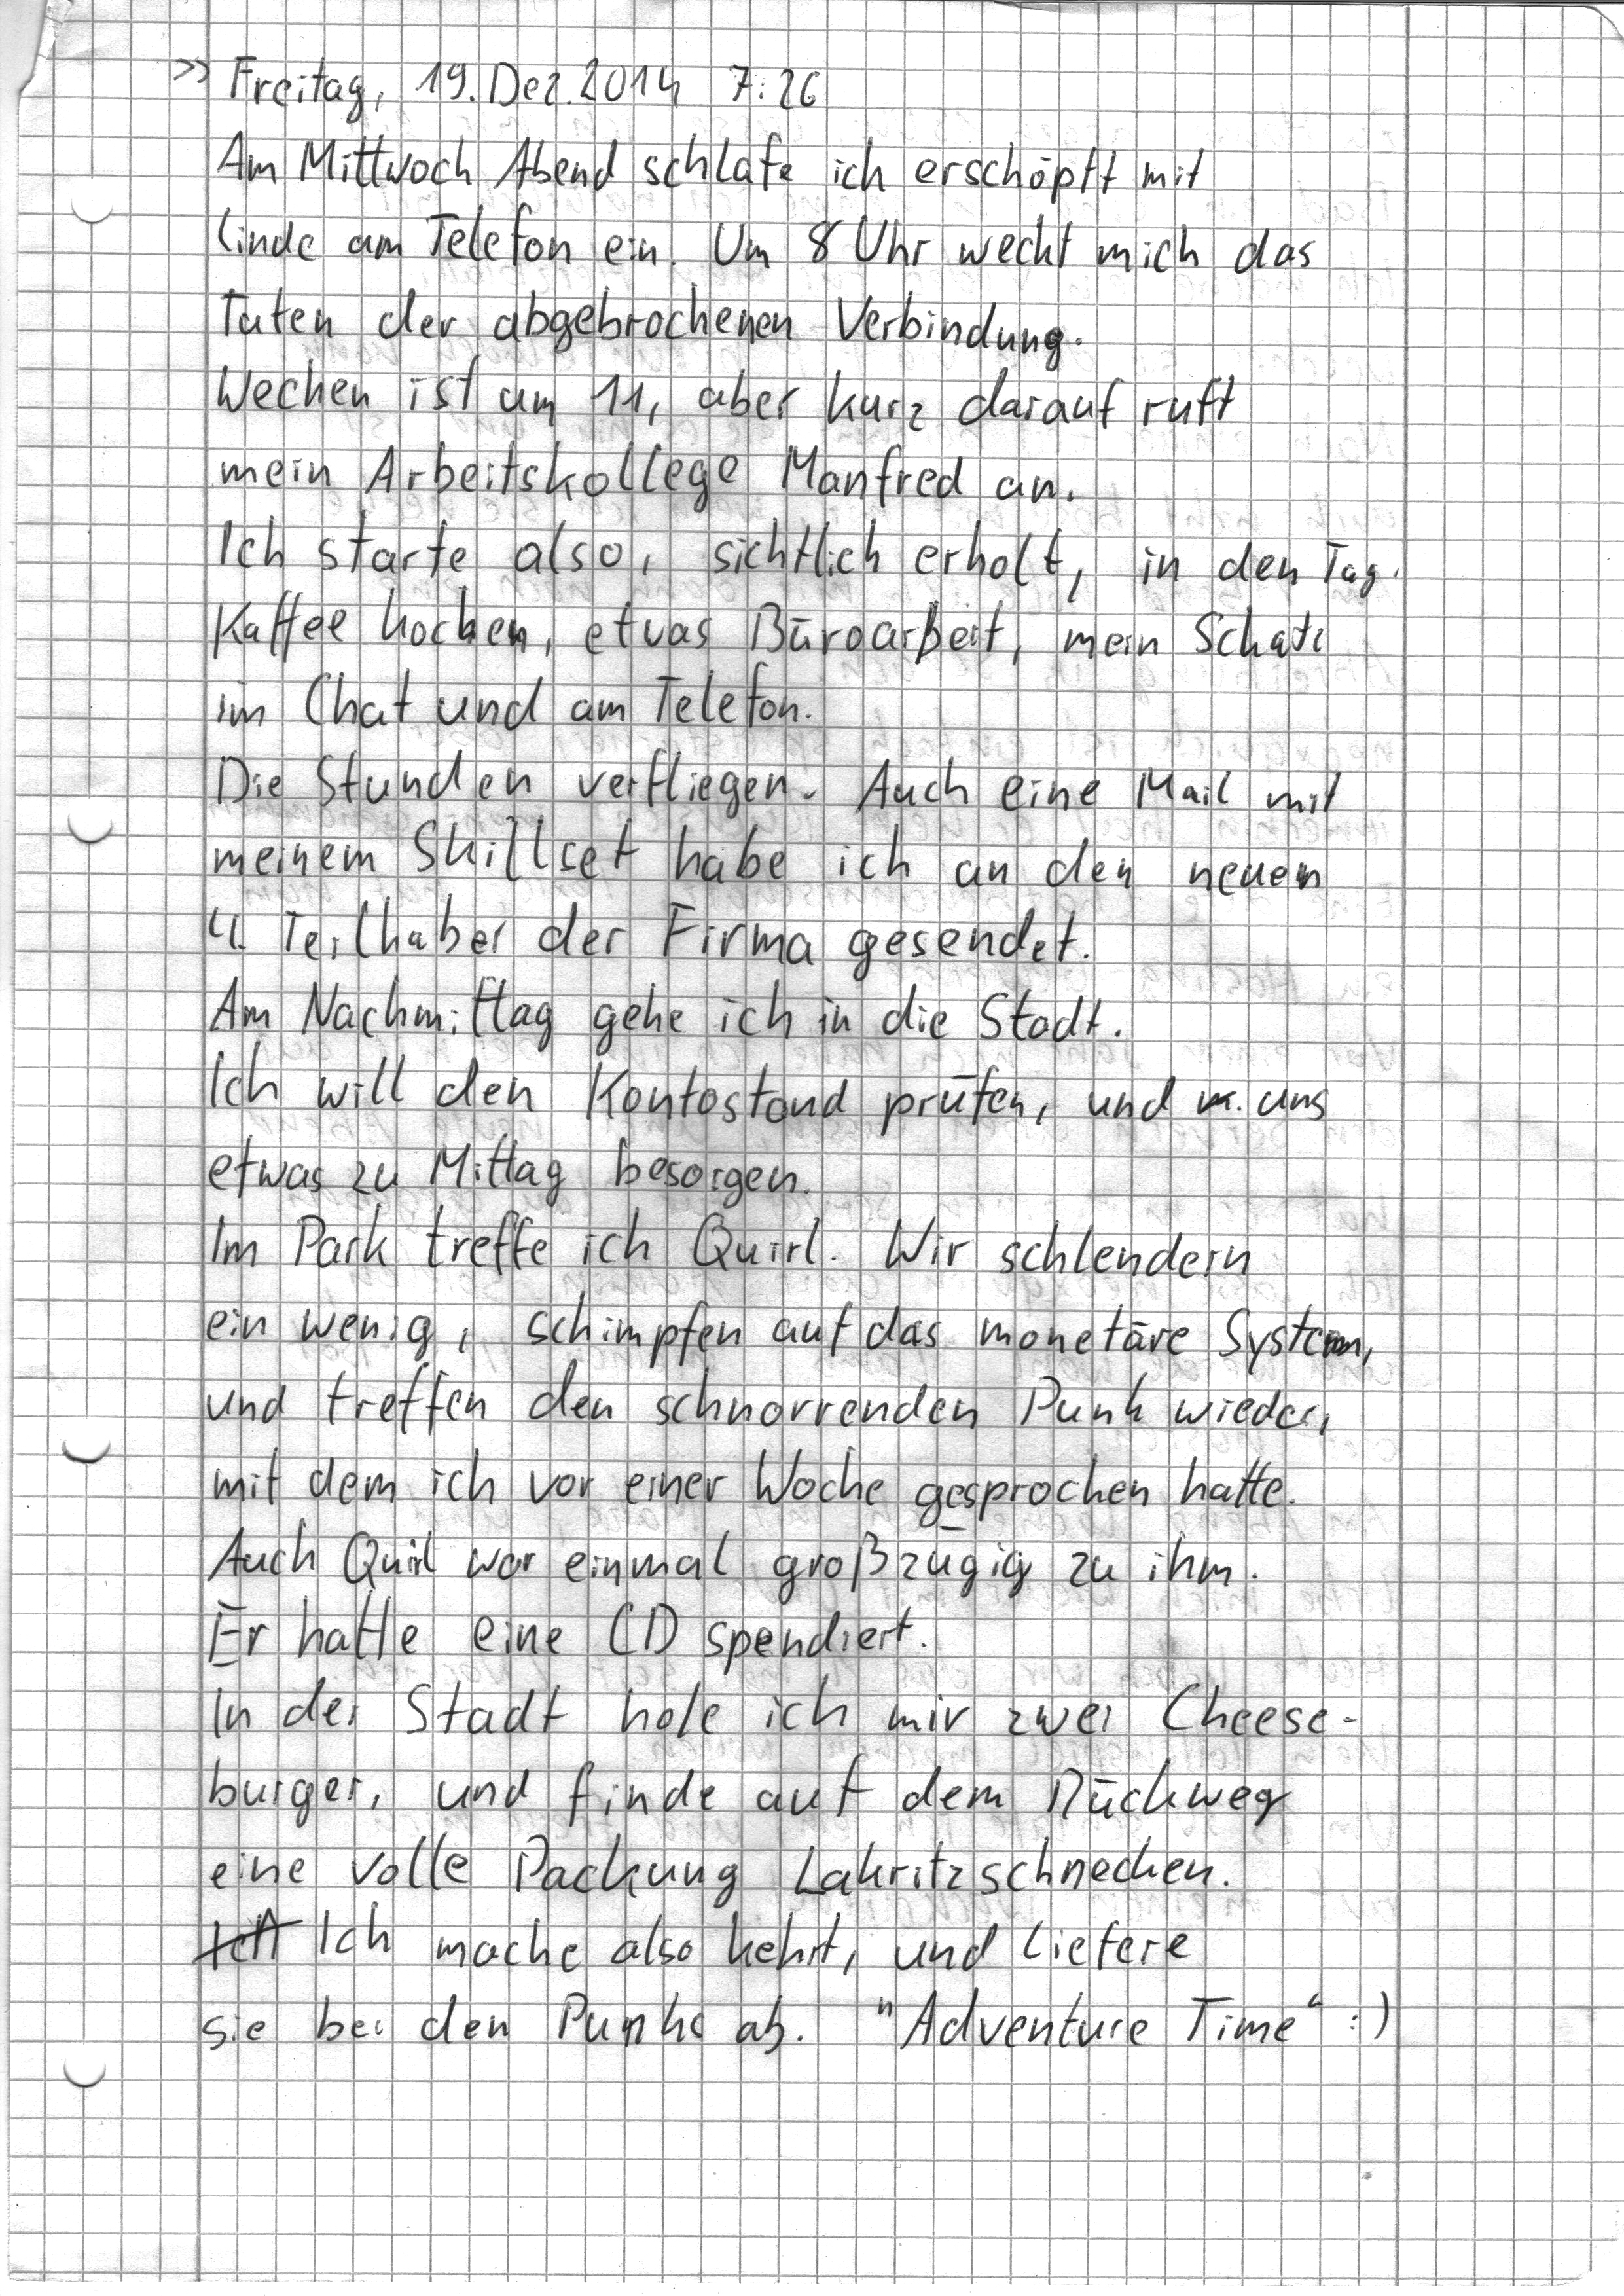 >> Freitag, 19. Dez. 2014 7:26
Am Mittwoch Abend schlafe ich erschöpft mit
Linde am Telefon ein. Um 8 Uhr weckt mich das
Tuten der abgebrochenen Verbindung.
Wecken ist um 11, aber kurz darauf ruft
mein Arbeitskollege Manfred an.
Ich starte also, sichtlich erholt, in den Tag.
Kaffee kochen, etwas Büroarbeit, mein Schatz
im Chat und am Telefon.
Die Stunden verfliegen. Auch eine Mail mit
meinem Skillset habe ich an den neuen
4. Teilhaber der Firma gesendet.
Am Nachmittag gehe ich in die Stadt.
Ich will den Kontostand prüfen, und uns
etwas zu Mittag besorgen.
Im Park treffe ich Quirl. Wir schlendern
ein wenig, schimpfen auf das monetäre System,
und treffen den schnorrenden Punk wieder,
mit dem ich vor einer Woche gesprochen hatte.
Auch Quirl war einmal großzügig zu ihm.
Er hatte eine CD spendiert.
In der Stadt hole ich mir zwei Cheese-
burger, und finde auf dem Rückweg
eine volle Packung Lakritzschnecken.
Ich Ich mache also kehrt, und liefere
sie bei den Punks ab. "Adventure Time" :)